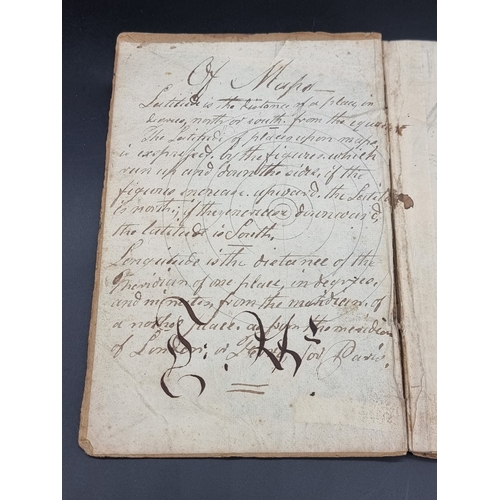 Of Maps
Latitude is the distance of a place in
north or south from the equator
The Latitude of places upon maps
is expressed by the figures which
run up and down the sides, if the
figures increase upward the Latitude
is north; if they increase downward
the latitude is South.
Longitude is the distance of the
Meridian of one place, in degrees
and minutes, from the meridian of
another place. as from the meridian
of London; or or Paris.